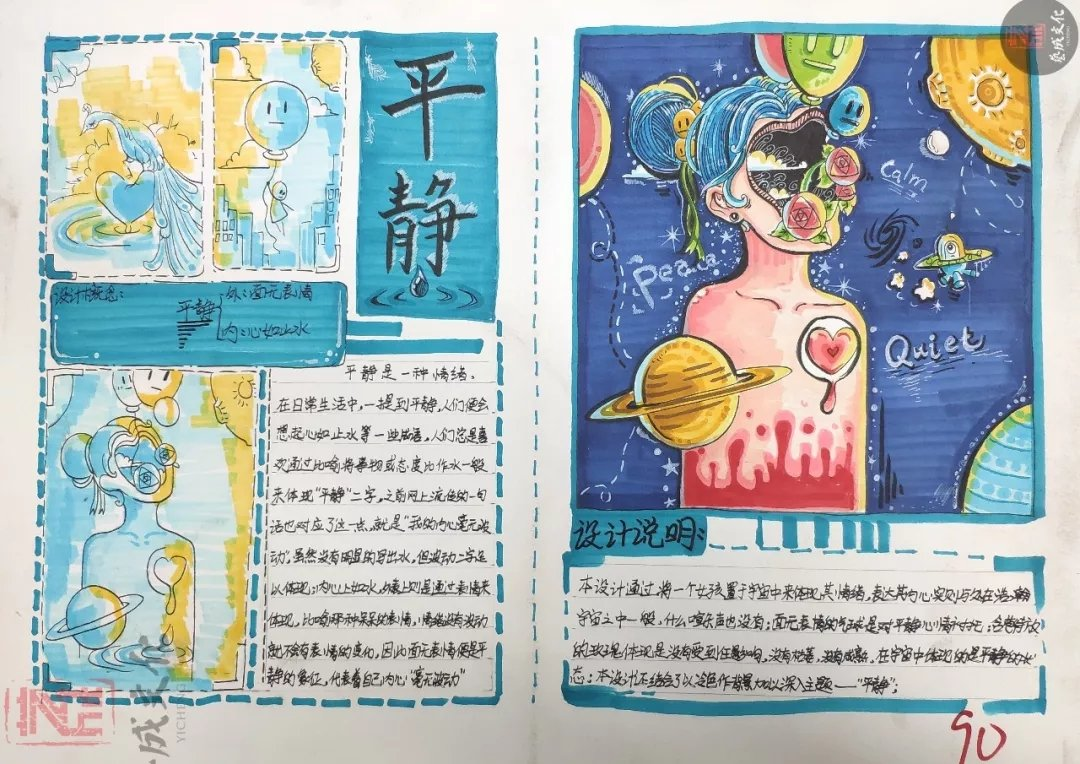 平静
设计概念:
平静
外:面无表情
内:心如止水
平静是一种情绪、
在日常生活中,一提到平静,人们便会
想起心如止水等一些成语,人们总是喜
欢通过比喻将事物或态度比作水一般
来体现"平静"二字,之前网上流传的一句
话也对应了这一点,就是"我的内心毫无波
动",虽然没有明显的写出水,但波动二字足
以体现;内心上如水,
则是通过表情来
体现,比喻那种呆呆的表情,情绪没有波动
就不会有表情的变化,因此面无表情便是平
静的象征,代表着自己内心"毫无波动"
Calm
Peace
Quiet
设计说明:
本设计通过将一个女孩置于宇宙中来体现其情绪,表达其内心
宇宙之中一般,什么声也没有;面无表情的气球是对平静心情
的玫瑰体现是没有受到任何影响,没有
在宇宙中体现的是平静的状
态;本设计还结合了以冷色作背景加以深入主题——"平静";
90
艺成文化
YICHENG